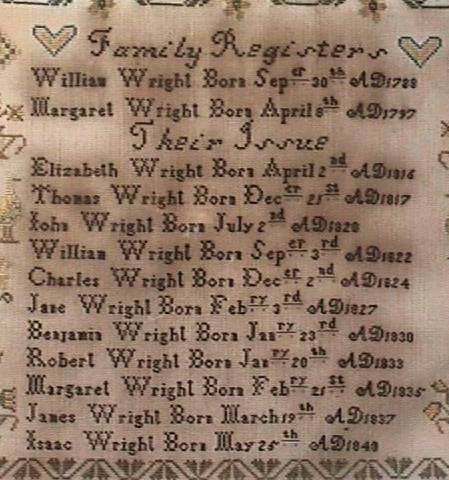 Family Registers
William Wright Born Seper 30th AD1788
Margaret Wright Born April 8th AD1797
Their Issue
Elizabeth Wright Born April 2nd AD1816
Thomas Wright Born Decer 21st AD1817
John Wright Born July 2nd AD1820
William Wright Born Seper 3rd AD1822
Charles Wright Born Decer 2nd AD1824
Jane Wright Born Febry 3rd AD1827
Benjamin Wright Born Janry 23rd AD1830
Robert Wright Born Janry 20th AD1833
Margaret Wright Born Febry 21st AD1835
James Wright Born March 19th AD1837
Isaac Wright Born May 25th AD1840